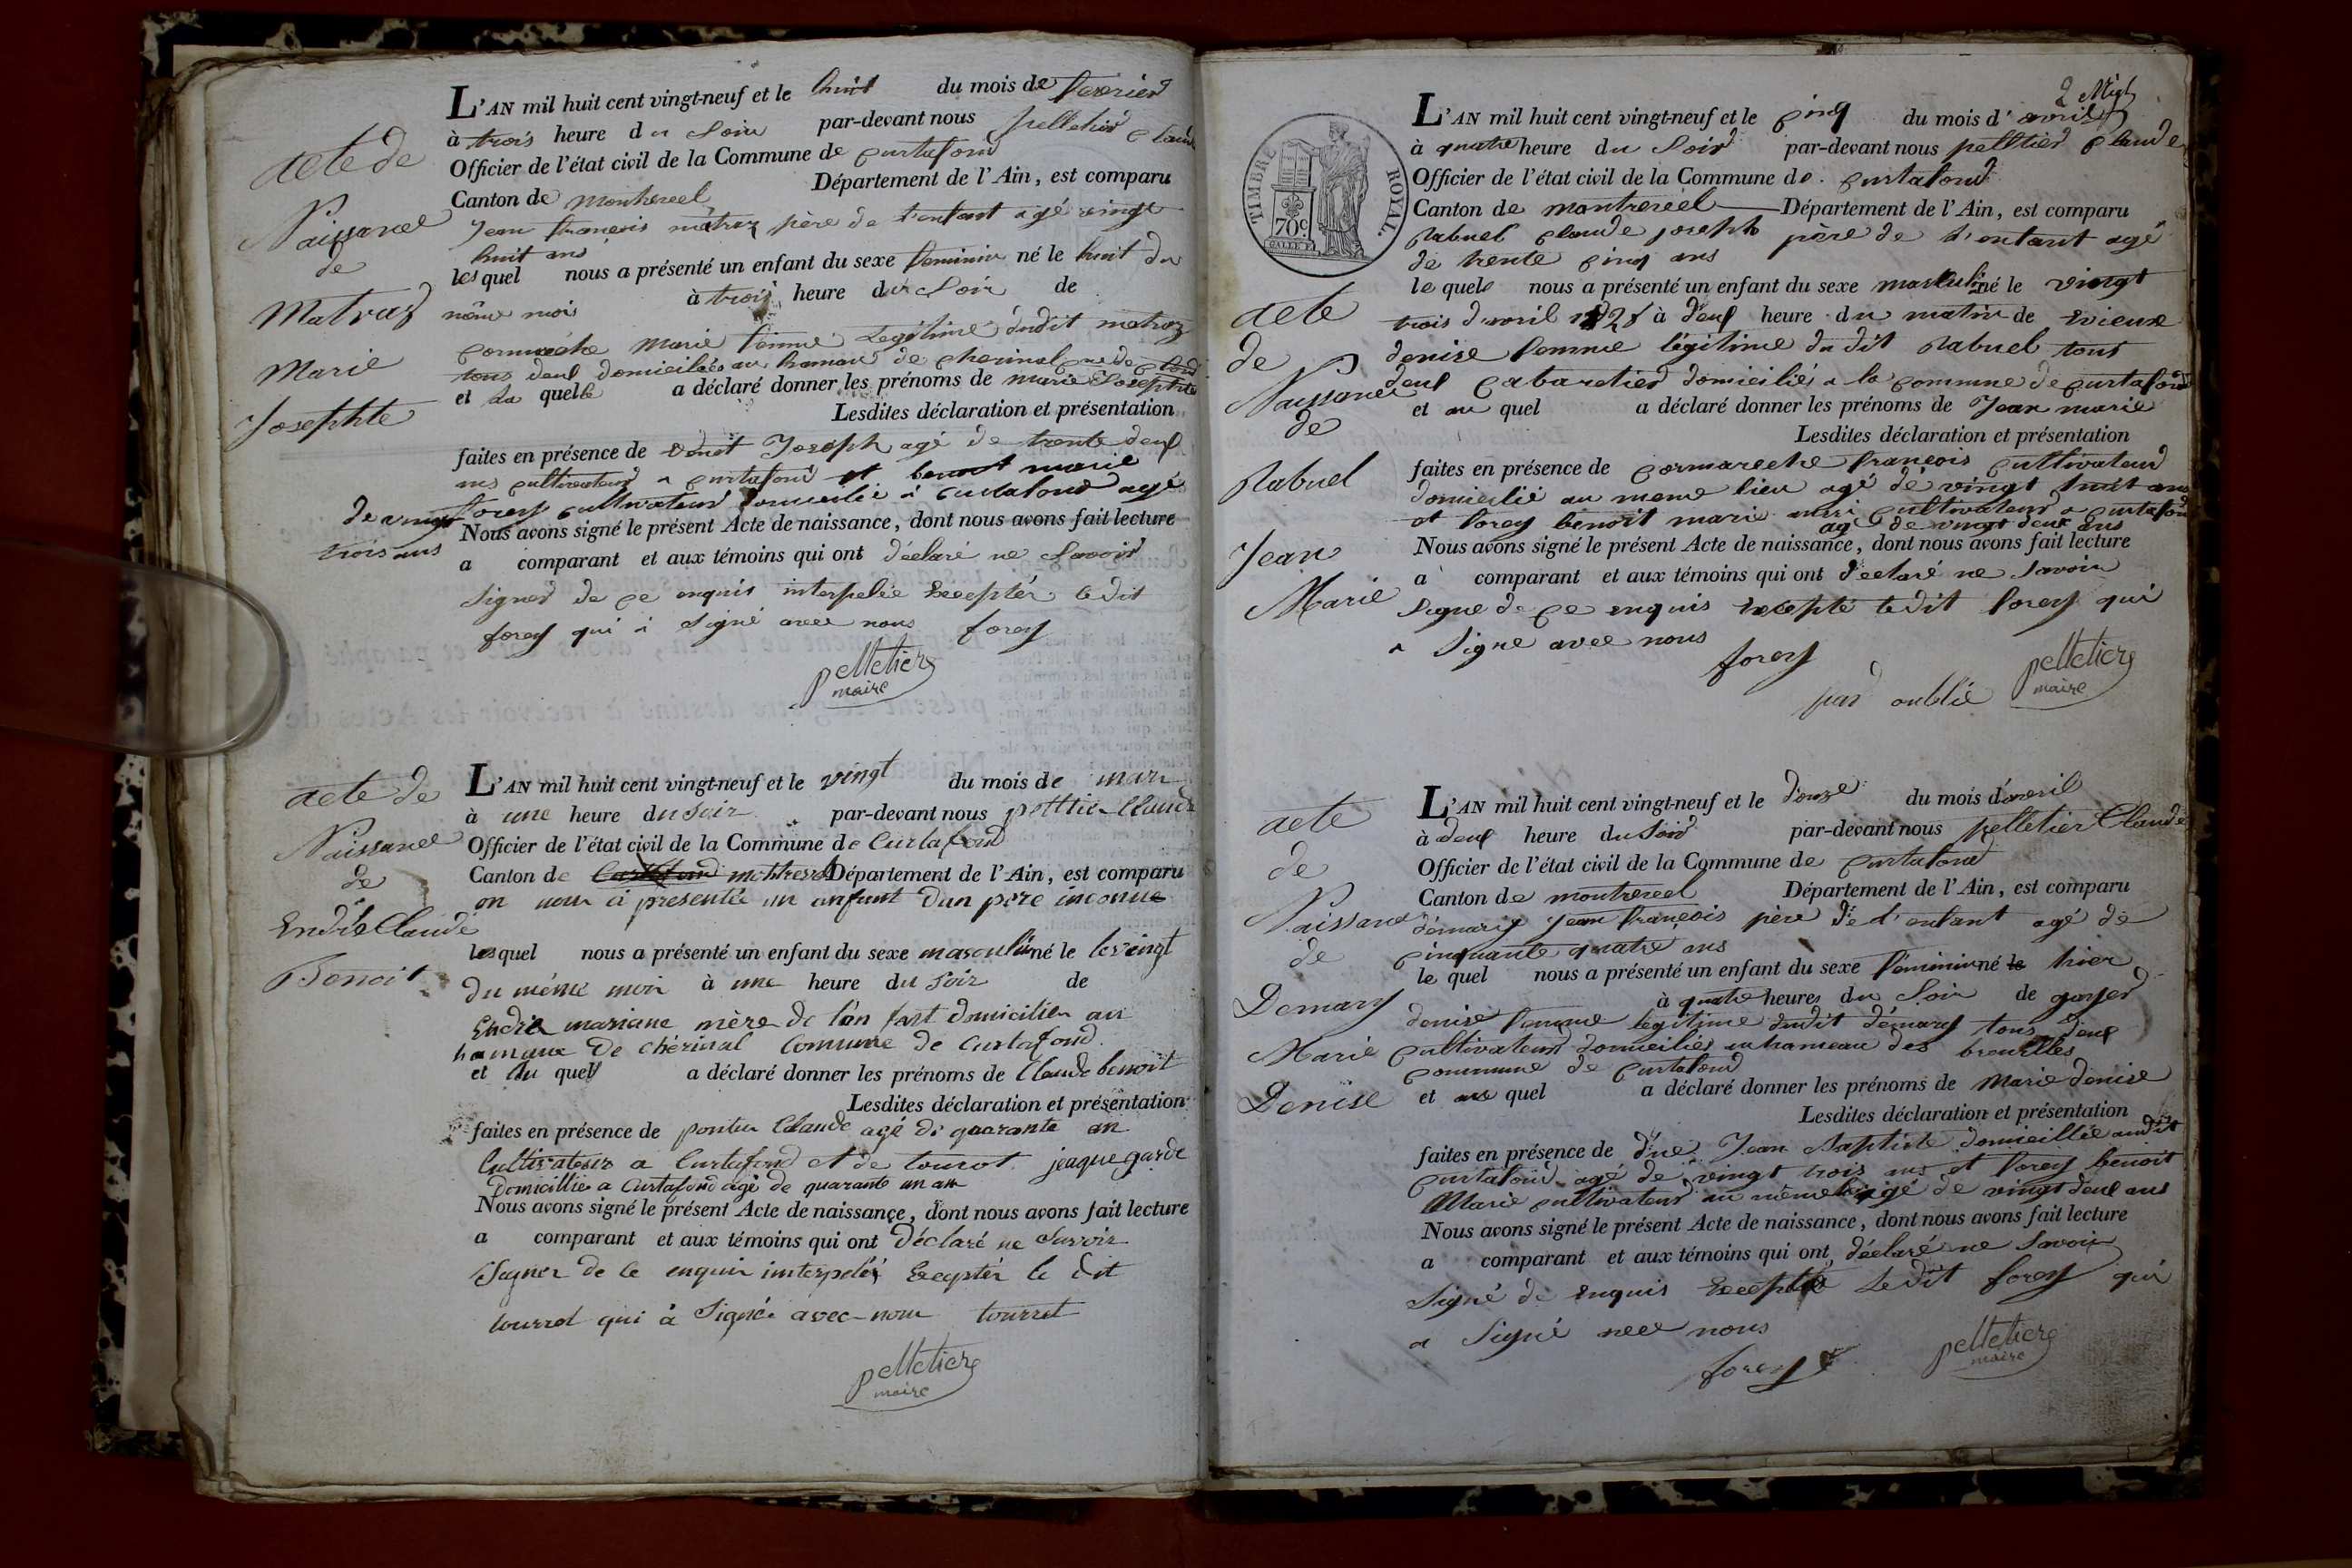 acte de
Naissance
de
Matraz
Marie
Josephte
L'AN mil huit cent vingt-neuf et le huit du mois de fevrier
à trois heure du Soir par-devant nous pelletier Claude
Officier de l'état civil de la Commune de Curtafond
Canton de montrevel Département de l'Ain, est comparu
Jean francois matraz père de l'enfant agé vingt
huit ans
les quel nous a présenté un enfant du sexe feminin né le huit du
même mois à trois heure du Soir de
Cormareche Marie femme Legitime dudit matraz
tous deux domiciliés au hameau de cherinal
et la quelle a déclaré donner les prénoms de marie Josephte
Lesdites déclaration et présentation
faites en présence de venet Joseph agé de trente deux
ans cultivateur a curtafond et benoit marie
forey cultivateur domicilié à Curtafond agé
de vingt trois ans
Nous avons signé le présent Acte de naissance, dont nous avons fait lecture
a comparant et aux témoins qui ont déclaré ne Savoir
Signer de ce enquis interpelée Excepter ledit
forey qui à Signé avec nous forey
pelletier
maire
acte de
Naissance
de
Endrè Claude
Benoit
L'AN mil huit cent vingt-neuf et le vingt du mois de mars
à une heure du soir par-devant nous pelttier Claude
Officier de l'état civil de la Commune de Curtafond
Canton de Curtafond montrevel Département de l'Ain, est comparu
on nous à presentée un enfant dun père inconnue
les quel nous a présenté un enfant du sexe masculin né le le vingt
du même mois à une heure du soir de
Endrè mariane mère de l'enfant domicilier au
hamaux De chérinal Commune de Curtafond
et du quel a déclaré donner les prénoms de Claude benoit
Lesdites déclaration et présentation
faites en présence de Claude agé de quarante an
Cultivateur a Curtafond et de tourot jeaque garde
Domicillier a Curtafond agé de quarante un an
Nous avons signé le présent Acte de naissance, dont nous avons fait lecture
a comparant et aux témoins qui ont Déclaré ne Savoir
Signer de ce enquis interpelér Excepter le dit
tourrot qui à Signée avec-nous tourret
pelletier
maire
TIMBRE ROYAL.
70c.
acte
de
Naissance
de
Rabuel
Jean
Marie
L'AN mil huit cent vingt-neuf et le cinq du mois d'avril
à quatre heure du Soir par-devant nous pelltier Claude
Officier de l'état civil de la Commune de Curtafond
Canton de montreveel Département de l'Ain, est comparu
Rabuel Claude joseph père de l'enfant agé
de trente cinq ans
le quel nous a présenté un enfant du sexe masculin né le vingt
trois d'avril 1828 à deux heure du matin de Evieux
denise femme légitime du dit Rabuel tous
deux Cabaretier domiciliés a la commune de curtafond
et au quel a déclaré donner les prénoms de Jean marie
Lesdites déclaration et présentation
faites en présence de Cormareche francois Cultivateur
domicilié au meme lieu agé de vingt huit ans
et forey benoit marie cultivateur a curtafond
agé de vingt deux ans
Nous avons signé le présent Acte de naissance, dont nous avons fait lecture
a comparant et aux témoins qui ont déclaré ne Savoir
Signe de ce enquis Excepté ledit forey qui
a Signe avec nous
forey
par oublié
pelletier
maire
acte
de
Naissance
de
Demary
Marie
Denise
L'AN mil huit cent vingt-neuf et le douze du mois d'avril
à deux heure du Soir par-devant nous pelletier Claude
Officier de l'état civil de la Commune de Curtafond
Canton de montreveel Département de l'Ain, est comparu
démary Jean françois père de l'enfant agé de
cinquante quatre ans
le quel nous a présenté un enfant du sexe féminin né le hier
à quatre heures du Soir de goyer
denise femme legitime dudit démary tous deux
cultivateur domiciliés au hameau des brevettes
commune de Curtafond
et au quel a déclaré donner les prénoms de Marie denise
Lesdites déclaration et présentation
faites en présence de Jean Baptiste domicillée audit
curtafond agé de vingt trois ans et forey benoit
Marie cultivateur au même lieu agé de vingt deux ans
Nous avons signé le présent Acte de naissance, dont nous avons fait lecture
a comparant et aux témoins qui ont déclaré ne Savoir
Signé de enquis Excepté Ledit forey qui
a Signé avec nous
forey
pelletier
maire